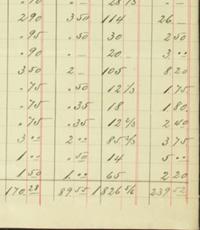 2 90 3 50 114 26 —
. 95 . 50 30 2 50
. 90 — 20 3 00
3 50 2 — 105 8 20
. 75 . 50 12 1/2 1 75
. 75 . 35 18 1 80
. 75 . 35 12 2/3 2 40
3 00 2 00 85 2/3 3 75
1 00 . 50 14 5 00
1 50 1 00 65 2 20
170.28 89 55 1826 5/6 239 52